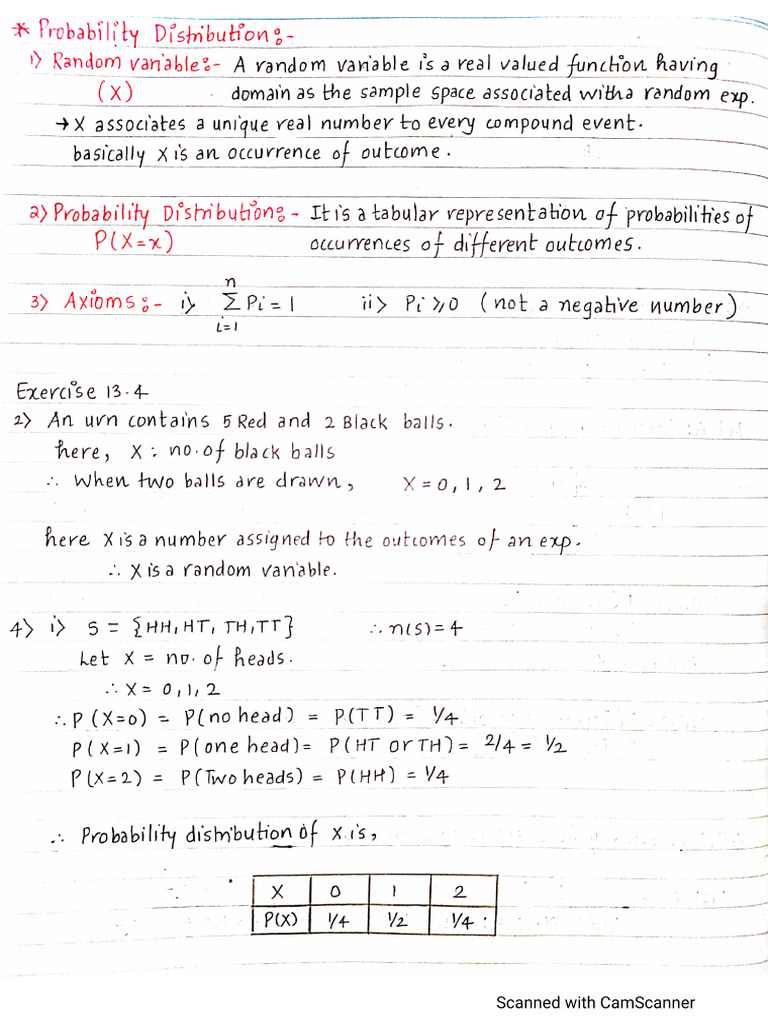 * Probability Distribution:-
1) Random variable:- A random variable is a real valued function having
(X) domain as the sample space associated with a random exp.
→ X associates a unique real number to every compound event.
basically X is an occurrence of outcome.
2) Probability Distribution:- It is a tabular representation of probabilities of
P(X=x) occurrences of different outcomes.
3) Axioms:- i) n∑i=1 Pi = 1 ii) Pi ⩾ 0 (not a negative number)
Exercise 13.4
2) An urn contains 5 Red and 2 Black balls.
here, X : no. of black balls
∴ When two balls are drawn, X = 0, 1, 2
here X is a number assigned to the outcomes of an exp.
∴ X is a random variable.
4) i) S = {HH, HT, TH, TT} ∴ n(S) = 4
Let X = no. of heads.
∴ X = 0, 1, 2
∴ P(X=0) = P(no head) = P(TT) = 1/4
P(X=1) = P(one head) = P(HT or TH) = 2/4 = 1/2
P(X=2) = P(Two heads) = P(HH) = 1/4
∴ Probability distribution of X is,
X 0 1 2
P(X) 1/4 1/2 1/4
Scanned with CamScanner